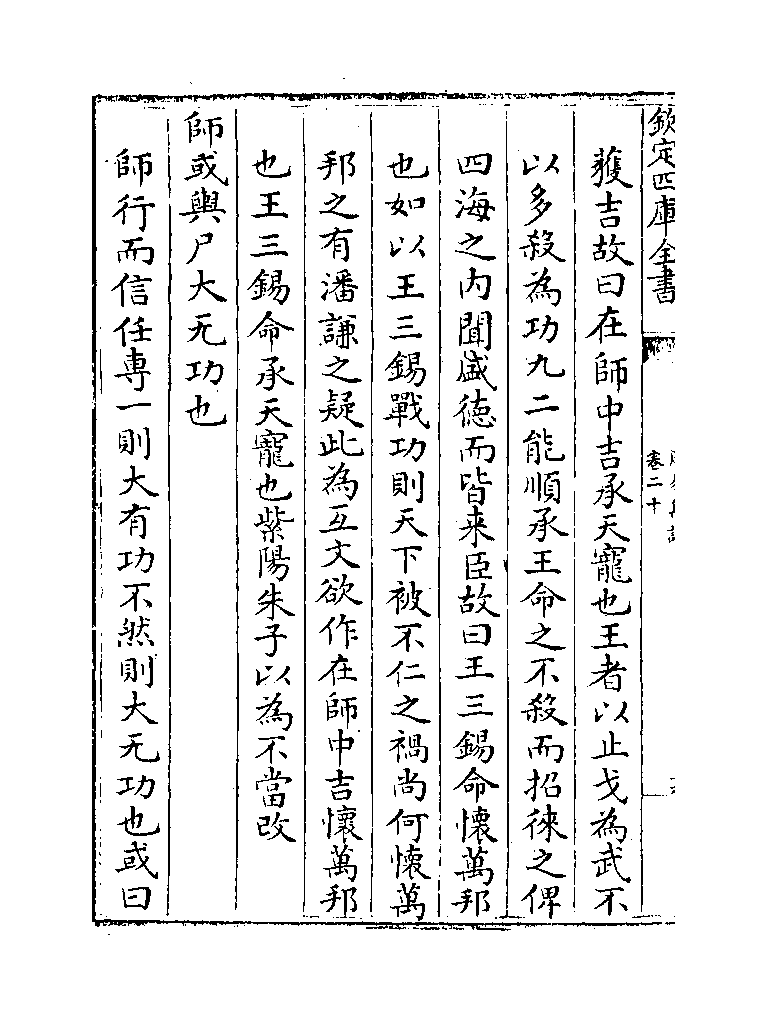 欽定四庫全書
卷二十
獲吉故曰在師中吉承天寵也王者以止戈為武不
以多殺為功九二能順承王命之不殺而招徠之俾
四海之内聞盛徳而皆来臣故曰王三錫命懷萬邦
也如以王三錫戰功則天下被不仁之禍尚何懷萬
邦之有潘謙之疑此為互文欲作在師中吉懷萬邦
也王三錫命承天寵也紫陽朱子以為不當改
師或輿尸大无功也
師行而信任專一則大有功不然則大无功也或曰